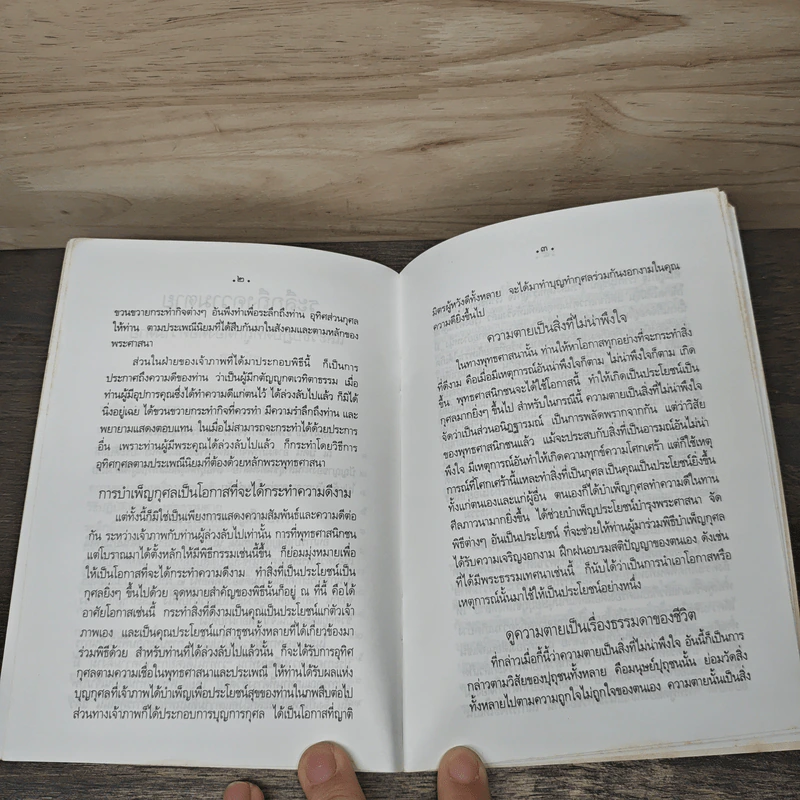 •๒•
ขวนขวายกระทำกิจต่างๆ อันพึงทำเพื่อระลึกถึงท่าน อุทิศส่วนกุศล
ให้ท่าน ตามประเพณีนิยมที่ได้สืบกันมาในสังคมและตามหลักของ
พระศาสนา
ส่วนในฝ่ายของเจ้าภาพที่ได้มาประกอบพิธีนี้ ก็เป็นการ
ประกาศถึงความดีของท่าน ว่าเป็นผู้มีกตัญญูกตเวทิตาธรรม เมื่อ
ท่านผู้มีอุปการคุณซึ่งได้ทำความดีแก่ตนไว้ ได้ล่วงลับไปแล้ว ก็มิได้
นิ่งอยู่เฉย ได้ขวนขวายกระทำกิจที่ควรทำ มีความรำลึกถึงท่าน และ
พยายามแสดงตอบแทน ในเมื่อไม่สามารถจะกระทำได้ด้วยประการ
อื่น เพราะท่านผู้มีพระคุณได้ล่วงลับไปแล้ว ก็กระทำโดยวิธีการ
อุทิศกุศลตามประเพณีนิยมที่ต้องด้วยหลักพระพุทธศาสนา
การบำเพ็ญกุศลเป็นโอกาสที่จะได้กระทำความดีงาม
แต่ทั้งนี้ก็มิใช่เป็นเพียงการแสดงความสัมพันธ์และความดีต่อ
กัน ระหว่างเจ้าภาพกับท่านผู้ล่วงลับไปเท่านั้น การที่พุทธศาสนิกชน
แต่โบราณมาได้ตั้งหลักให้มีพิธีกรรมเช่นนี้ขึ้น ก็ย่อมมุ่งหมายเพื่อ
ให้เป็นโอกาสที่จะได้กระทำความดีงาม ทำสิ่งที่เป็นประโยชน์เป็น
กุศลยิ่งๆ ขึ้นไปด้วย จุดหมายสำคัญของพิธีนั้นก็อยู่ ณ ที่นี้ คือได้
อาศัยโอกาสเช่นนี้ กระทำสิ่งที่ดีงามเป็นคุณเป็นประโยชน์แก่ตัวเจ้า
ภาพเอง และเป็นคุณประโยชน์แก่สาธุชนทั้งหลายที่ได้เกี่ยวข้องมา
ร่วมพิธีด้วย สำหรับท่านที่ได้ล่วงลับไปแล้วนั้น ก็จะได้รับการอุทิศ
กุศลตามความเชื่อในพุทธศาสนาและประเพณี ให้ท่านได้รับผลแห่ง
บุญกุศลที่เจ้าภาพได้บำเพ็ญเพื่อประโยชน์สุขของท่านในภพสืบต่อไป
ส่วนทางเจ้าภาพก็ได้ประกอบการบุญการกุศล ได้เป็นโอกาสที่ญาติ
•๓•
มิตรผู้หวังดีทั้งหลาย จะได้มาทำบุญทำกุศลร่วมกันงอกงามในคุณ
ความดียิ่งขึ้นไป
ความตายเป็นสิ่งที่ไม่น่าพึงใจ
ในทางพุทธศาสนานั้น ท่านให้หาโอกาสทุกอย่างที่จะกระทำสิ่ง
ที่ดีงาม คือเมื่อมีเหตุการณ์อันน่าพึงใจก็ตาม ไม่น่าพึงใจก็ตาม เกิด
ขึ้น พุทธศาสนิกชนจะได้ใช้โอกาสนี้ ทำให้เกิดเป็นประโยชน์เป็น
กุศลมากยิ่งๆ ขึ้นไป สำหรับในกรณีนี้ ความตายเป็นสิ่งที่ไม่น่าพึงใจ
จัดว่าเป็นส่วนอนิฏฐารมณ์ เป็นการพลัดพรากจากกัน แต่ว่าวิสัย
ของพุทธศาสนิกชนแล้ว แม้จะประสบกับสิ่งที่เป็นอารมณ์อันไม่น่า
พึงใจ มีเหตุการณ์อันทำให้เกิดความทุกข์ความโศกเศร้า แต่ก็ใช้เหตุ
การณ์ที่โศกเศร้านี้แหละทำสิ่งที่เป็นกุศลเป็นคุณเป็นประโยชน์ยิ่งขึ้น
ทั้งแก่ตนเองและแก่ผู้อื่น ตนเองก็ได้บำเพ็ญกุศลทำความดีในทาน
ศีลภาวนามากยิ่งขึ้น ได้ช่วยบำเพ็ญประโยชน์บำรุงพระศาสนา จัด
พิธีต่างๆ อันเป็นประโยชน์ ที่จะช่วยให้ท่านผู้มาร่วมพิธีบำเพ็ญกุศล
ได้รับความเจริญงอกงาม ฝึกฝนอบรมสติปัญญาของตนเอง ดังเช่น
ที่ได้มีพระธรรมเทศนาเช่นนี้ ก็นับได้ว่าเป็นการนำเอาโอกาสหรือ
เหตุการณ์นั้นมาใช้ให้เป็นประโยชน์อย่างหนึ่ง
ดูความตายเป็นเรื่องธรรมดาของชีวิต
ที่กล่าวเมื่อกี้นี้ว่าความตายเป็นสิ่งที่ไม่น่าพึงใจ อันนี้ก็เป็นการ
กล่าวตามวิสัยของปุถุชนทั้งหลาย คือมนุษย์ปุถุชนนั้น ย่อมวัดสิ่ง
ทั้งหลายไปตามความถูกใจไม่ถูกใจของตนเอง ความตายนั้นเป็นสิ่ง